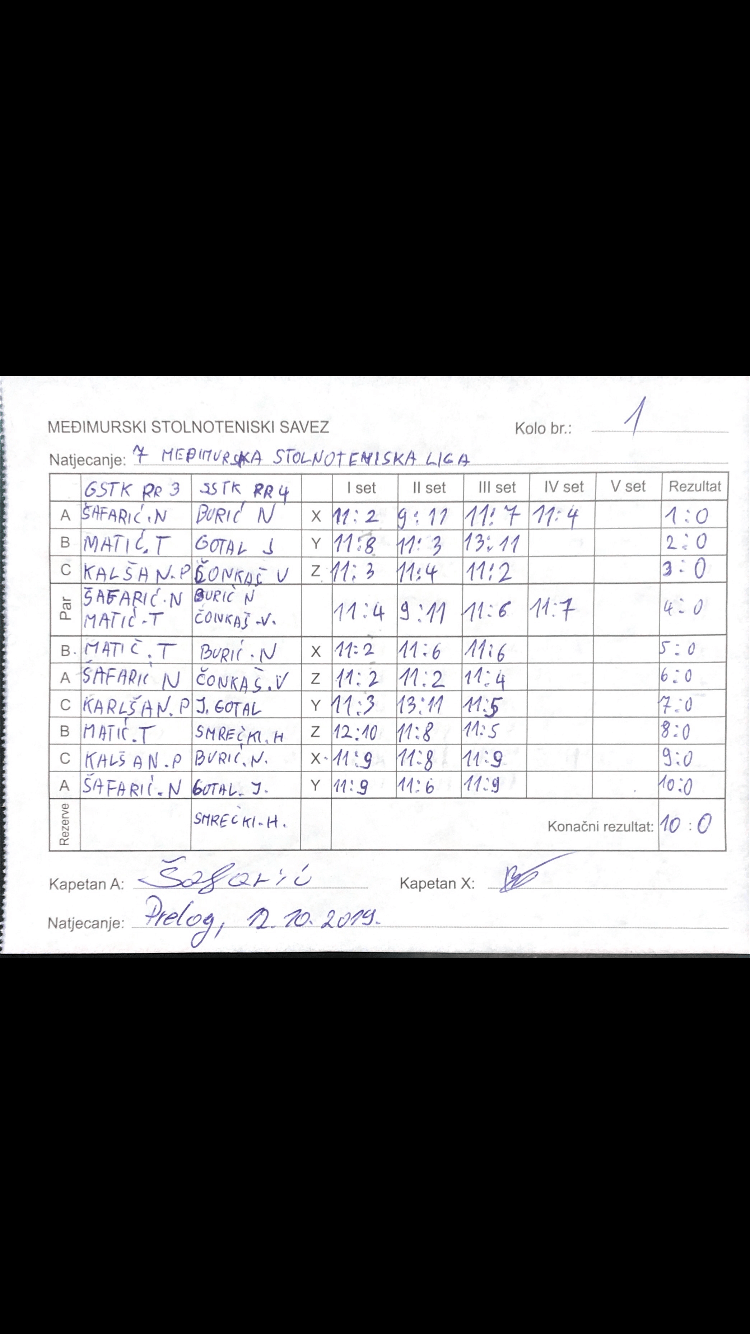 MEĐIMURSKI STOLNOTENISKI SAVEZ Kolo br.: 1
Natjecanje: 7 MEĐIMURSKA STOLNOTENISKA LIGA
GSTK RR 3 SSTK RR4 I set II set III set IV set V set Rezultat
A ŠAFARIĆ.N BURIĆ N X 11:2 9:11 11:7 11:4 1:0
B MATIĆ.T GOTAL J Y 11:8 11:3 13:11 2:0
C KALŠAN.P ČONKAŠ V Z 11:3 11:4 11:2 3:0
Par ŠAFARIĆ-N BURIĆ N 11:4 9:11 11:6 11:7 4:0
MATIĆ-T ČONKAŠ-V.
B. MATIĆ.T BURIĆ.N X 11:2 11:6 11:6 5:0
A ŠAFARIĆ N ČONKAŠ.V Z 11:2 11:2 11:4 6:0
C KARLŠAN.P J.GOTAL Y 11:3 13:11 11:5 7:0
B MATIĆ.T SMREČKI.H Z 12:10 11:8 11:5 8:0
C KALŠAN.P BURIĆ.N. X 11:9 11:8 11:9 9:0
A ŠAFARIĆ.N GOTAL.J. Y 11:9 11:6 11:9 10:0
Rezerve SMREČKI-H. Konačni rezultat: 10:0
Kapetan A: Šafarić Kapetan X:
Natjecanje: Prelog, 12.10.2019.